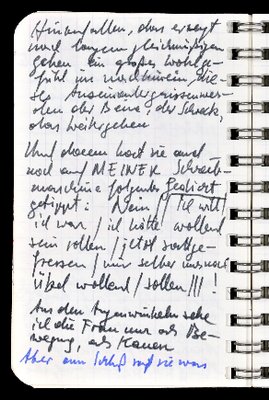 Hinausfallen, das erzeugt
nach langem gleichmäßigen
gehen ein großes Wohlge-
fühl im nachhinein, die-
ses Auseinandergerissenwer-
den der Beine, der Schreck,
das Weitergehen
Und dann hat sie auch
noch auf MEINER Schreib-
maschine folgendes Gedicht
getippt: Nein / ich will /
ich war / ich hätte wollend
sein sollen / jetzt sattge-
fressen / mir selber
übel wollend / sollen ///!
Aus den Augenwinkeln sehe
ich die Frau nur als Be-
wegung, als Kauen
Aber am Schluß sagt sie was